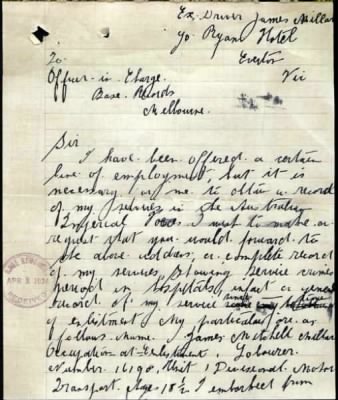 Ex. Driver James Millar
c/o Ryans Hotel
Everton
Vic
To
Officer in Charge
Base Records
Melbourne.
Sir
I have been offered a certain
line of employment, but it is
necessary for me to obtain a record
of my services in the Australian
Imperial I wish to make a
request that you would forward to
the above address, a complete record
of my services, showing service crimes
period in hospitals, infact a general
record of my service since my time
of enlistment My particulars are as
follows. Name. James Mitchell Millar
Occupation at Enlistment, Labourer.
Number. 16198, Unit 1 Divisional Motor
Transport. Age 18½. I embarked from
BASE RECORDS
APR 3
RECEIVED